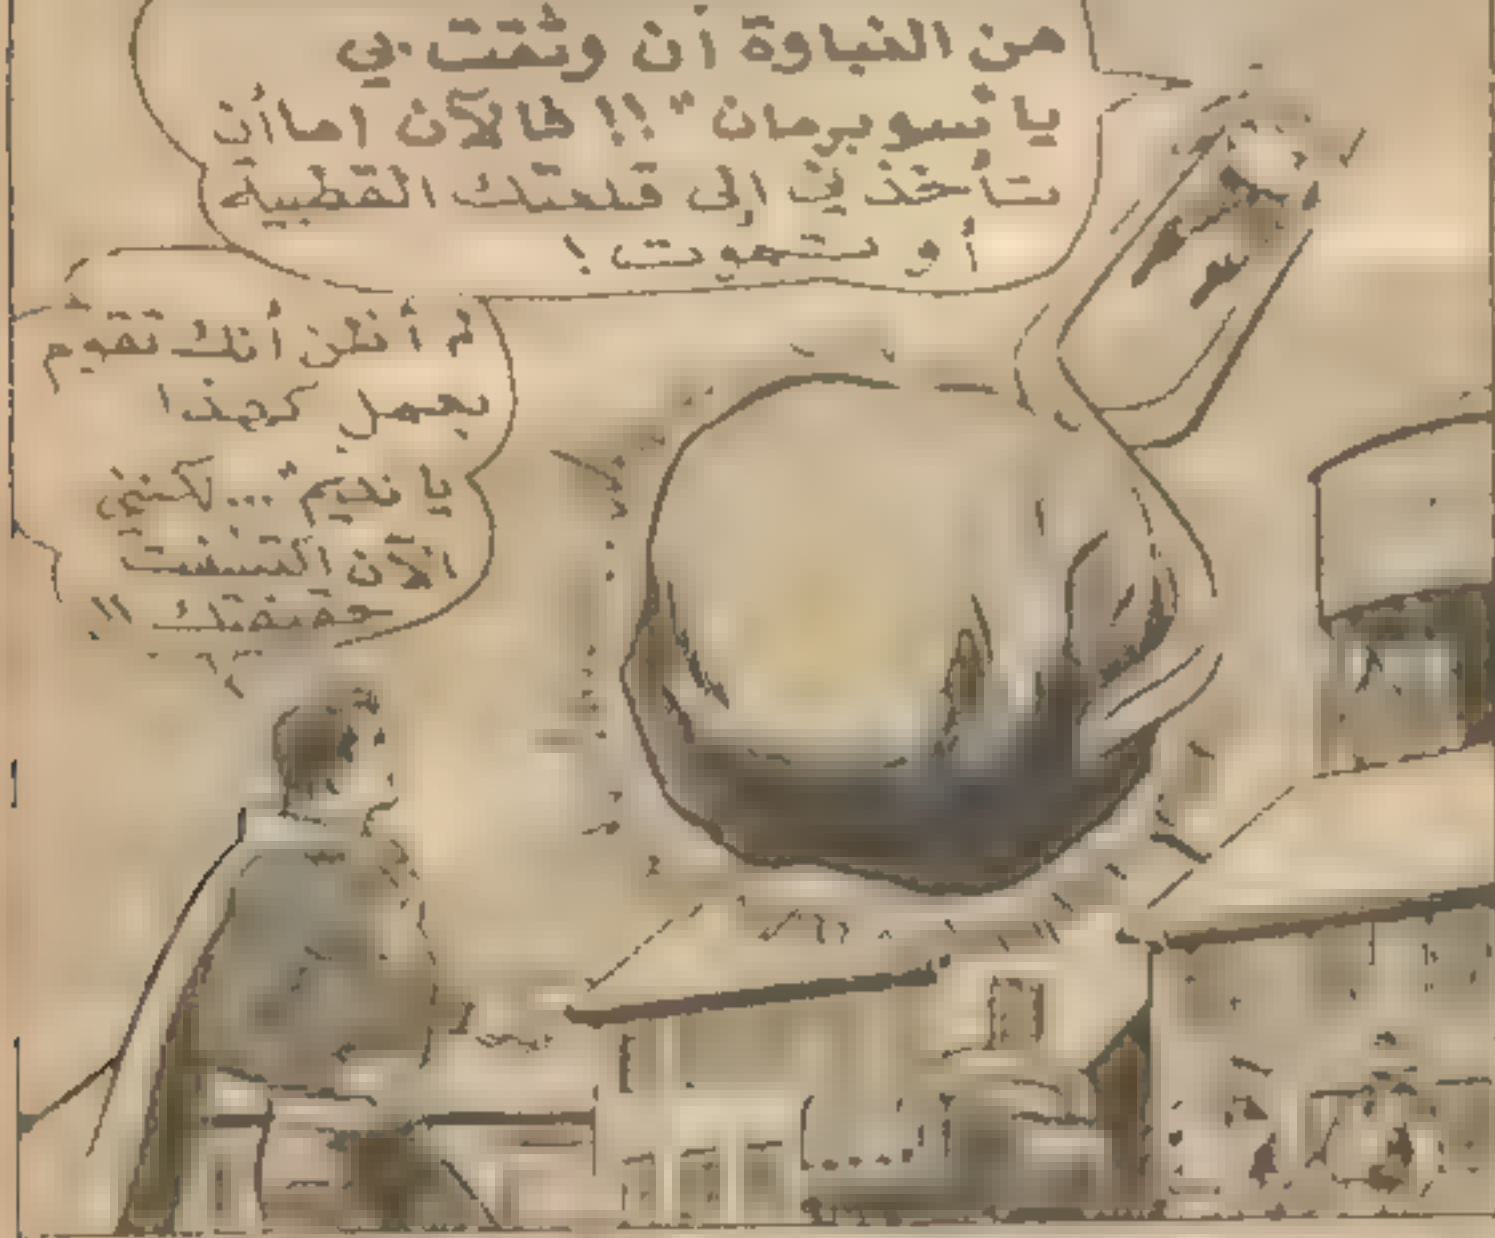 من الغباوة أن وثقت بي
يا "سوبرمان" !! فالآن اما أن
تأخذني إلى قلعتك القطبية
أو تموت !
لم أظن أنك تقوم
بعمل كهذا
يا "نديم" ... لكنني
الآن اكتشفت
حقيقتك !!